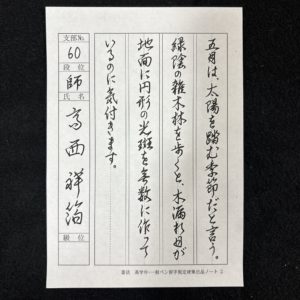 五月は、太陽を踏む季節だと言う。
緑陰の雑木林を歩くと、木漏れ日が
地面に円形の光斑を無数に作って
いるのに気付きます。
支部No.
60
段位
師
氏名
高西祥箔
級位